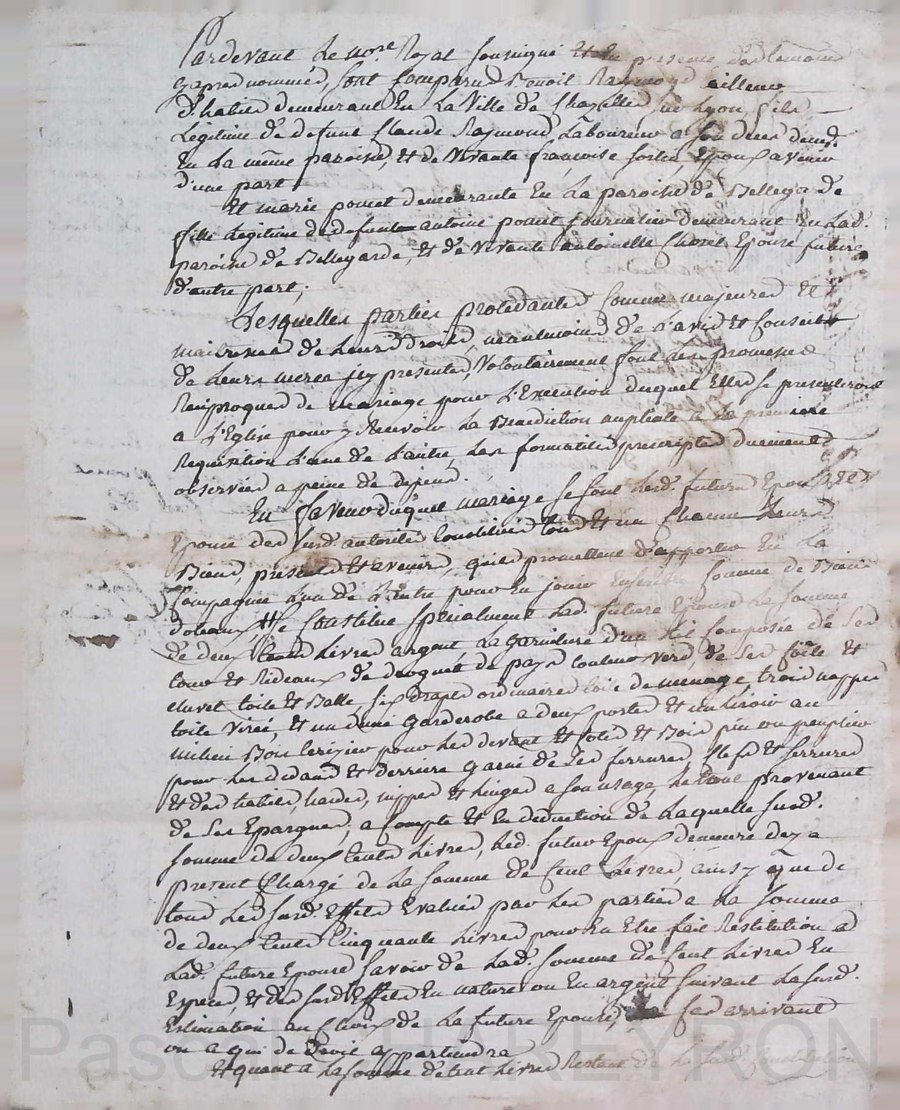 Pardevant Le no.re Royal soussigné et en presence des temoins
cy apres nommés, sont comparus Benoit Raymond tailleur
d'habits demeurant En La Ville de Chazelles sur Lyon, fils
Légitime de defunt Claude Raymond, Laboureur a son deces demt.
En La même paroisse, et de vivante françoise fortier Epoux a venir
d'une part
Et marie pomet demeurante En La paroisse de Bellegarde
fille Legitime de defunt antoine pomet journalier demeurant En Lad.
paroisse de Bellegarde et de vivante antoinette Chorel Epouse future
d'autre part;
Lesquelles parties procedantes Comme majeures et
maitresses de Leurs droits, neantmoins de L'avis et Conseils
de Leurs meres icy presentes, Volontairement font les promesses
Reciproques de mariage pour L'Execution duquel Elles se presenteront
a L'Eglise pour y Recevoir La Benediction nuptiale a La premiere
Requisition L'une de L'autre, Les formalités prescriptes duement
observées a peine de depens.
En faveur duquel mariage se sont Lesd. futurs Epoux
Epouse des susd. autorités Constitués tous et un Chacun Leurs
Biens presents et avenir, qu'ils promettent d'apporter En La
Compagnie L'un de L'autre pour En jouir Ensemble Comme de Biens
dotaux, Et se Constitue specialement Lad. future Epouse La somme
de deux Cents Livres argent, La garniture d'un Lit Composée de Ses
tour et Rideaux de droguet de pays Couleur verd, de Ses toile et
chevet toile et Balle, six draps ordinaires toile de menage, trois nappes
toile virée, et un demi garderobe a deux portes et un tiroir au
milieu Bois Cerizier pour Les devant et Cotés et Bois pin ou peuplier
pour Les dedans et derriere garni de Ses ferrures, Clefs et serrures
et des habits, hardes, nippes et Linges a Son usage, Le tout provenant
de Ses Epargnes, a Compte et En deduction de Laquelle Susd.
somme de deux Cents Livres, Led. futur Epoux demeure des a
present Chargé de La somme de Cent Livres, ainsy que de
tous Les Susd. Effets Evalués par Les parties a La somme
de deux Cents Cinquante Livres pour En Etre fait Restitution a
Lad. future Epouse Savoir de Lad. somme de Cent Livres En
Especes, et des Susd. Effets En nature ou En argent suivant La susd.
Estimation au Choix de La future Epouse, Le Cas arrivant
ou a qui de droit appartiendra
Et quant a La somme de Cent Livres Restant de La Susd. Constitution
Pascal REYRON